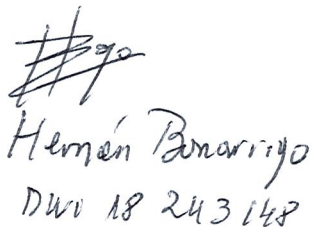 Hernán Bonarrigo
DNI 18 243 148